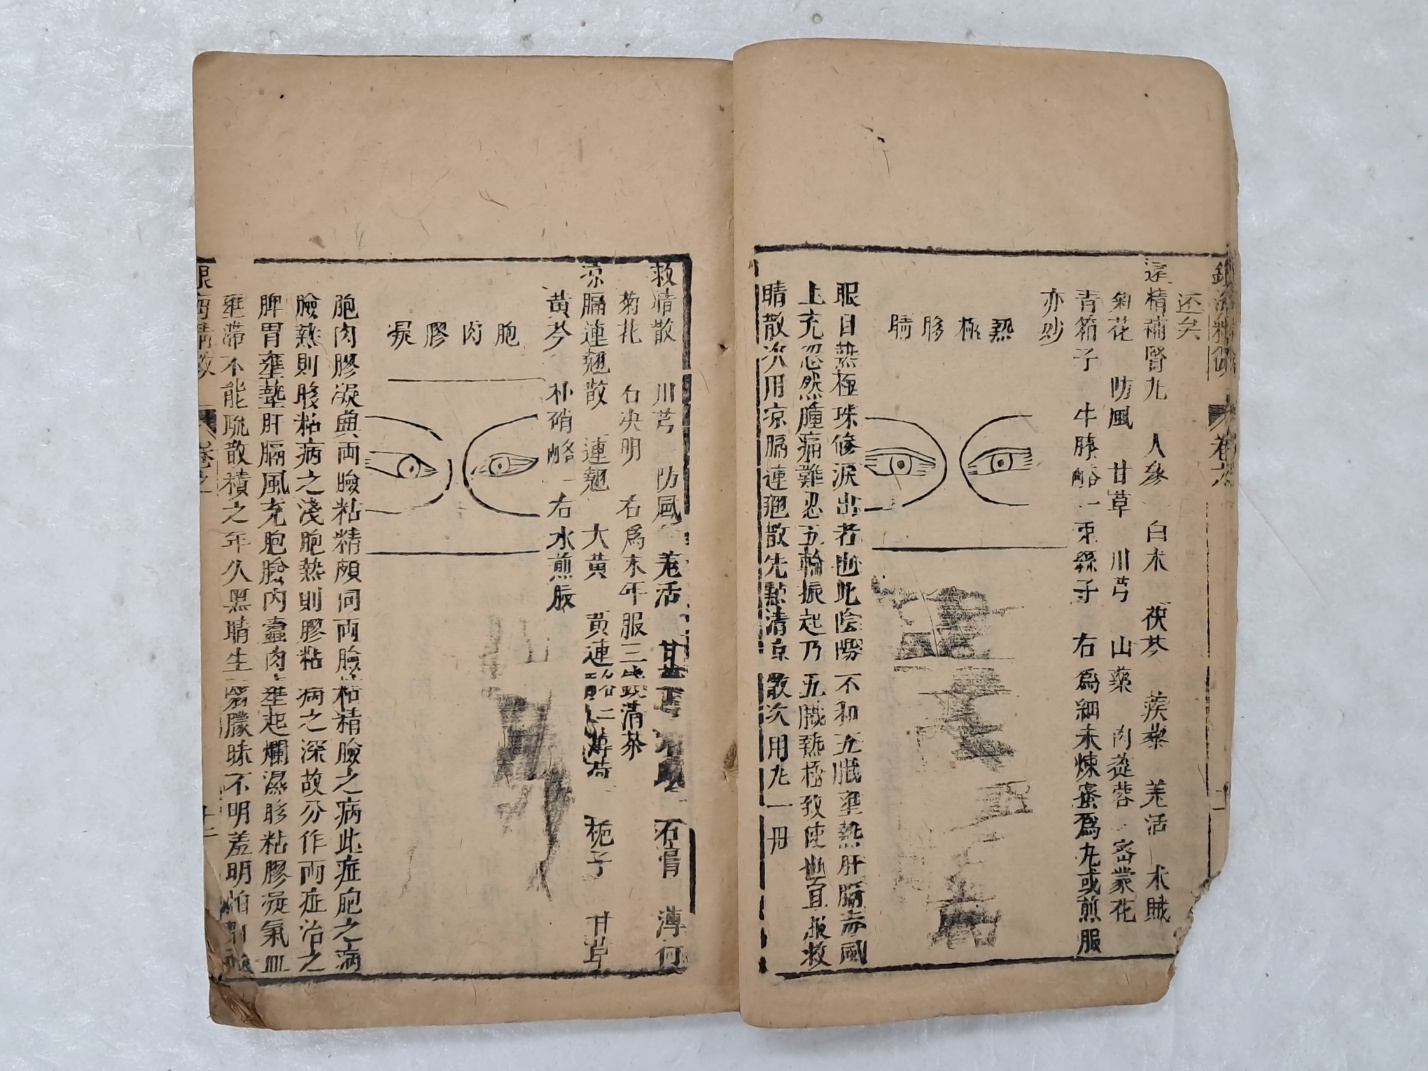 還矣
還精補腎丸 人參 白朮 茯苓 蒺藜 羗活 木賊
菊花 防風 甘草 川芎 山藥 肉蓯蓉 密蒙花
青箱子 牛膝 各一 兎絲子 右爲細末煉蜜爲丸或煎服
亦妙
熱極眵睛
眼目熱極珠疼淚出者也此陰陽不和五臟壅熱肝膈毒風
上充忽然腫痛難忍五輪振起乃五臟熱極致使也宜服救
睛散次用凉膈連翹散先點清凉散次用九一丹
卷六
救睛散 川芎 防風 羗活 甘草 石膏 薄荷
菊花 石決明 右爲末每服三錢清茶
凉膈連翹散 連翹 大黄 黄連 薄荷 梔子 甘草
黄芩 朴硝 右水煎服
胞肉膠凝
胞肉膠凝與両瞼粘精頗同両瞼粘精瞼之病此症胞之病
瞼熱則眵粘病之淺胞熱則膠粘病之深故分作両症治之
脾胃壅熱肝膈風充胞瞼内蠹肉壅起爛濕眵粘膠凝氣血
壅滯不能疏散積之年久黑睛生翳朦昧不明羞明怕
十二